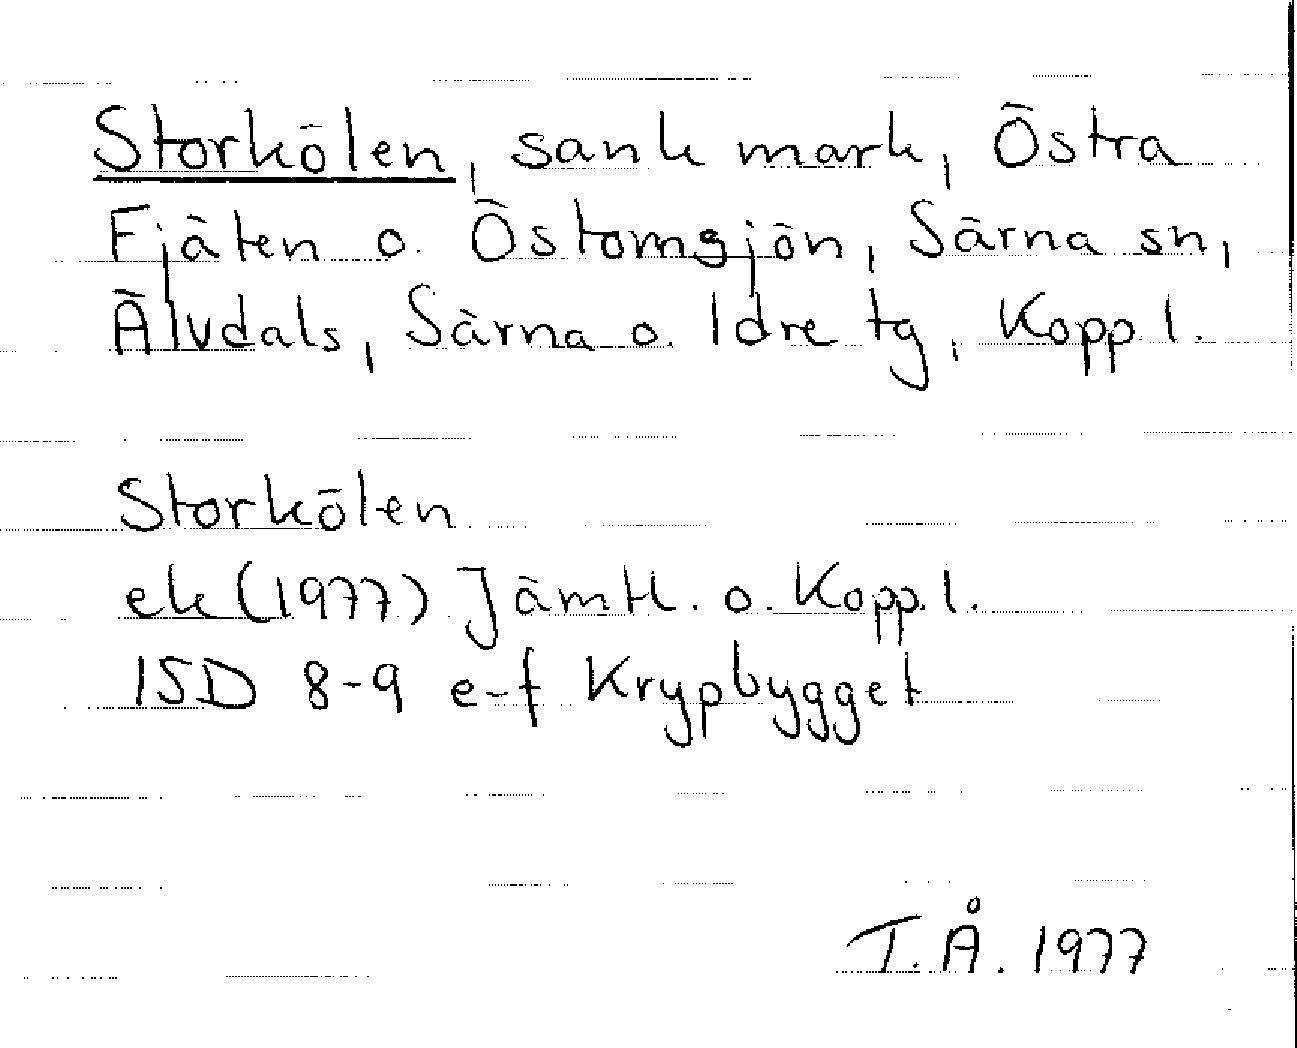 Storkölen, sank mark, Östra
Fjäten o. Östomsjön, Särna sn,
Älvdals, Särna o. Idre tg, Kopp.l.
Storkölen
ek (1977) Jämtl. o. Kopp.l.
15D 8-9 e-f Krypbygget
T.Å. 1977